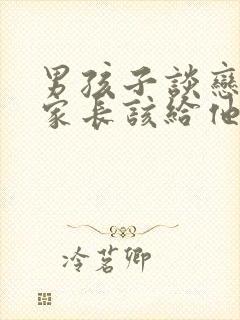 男孩子談戀
家長該給他
冷茗卿